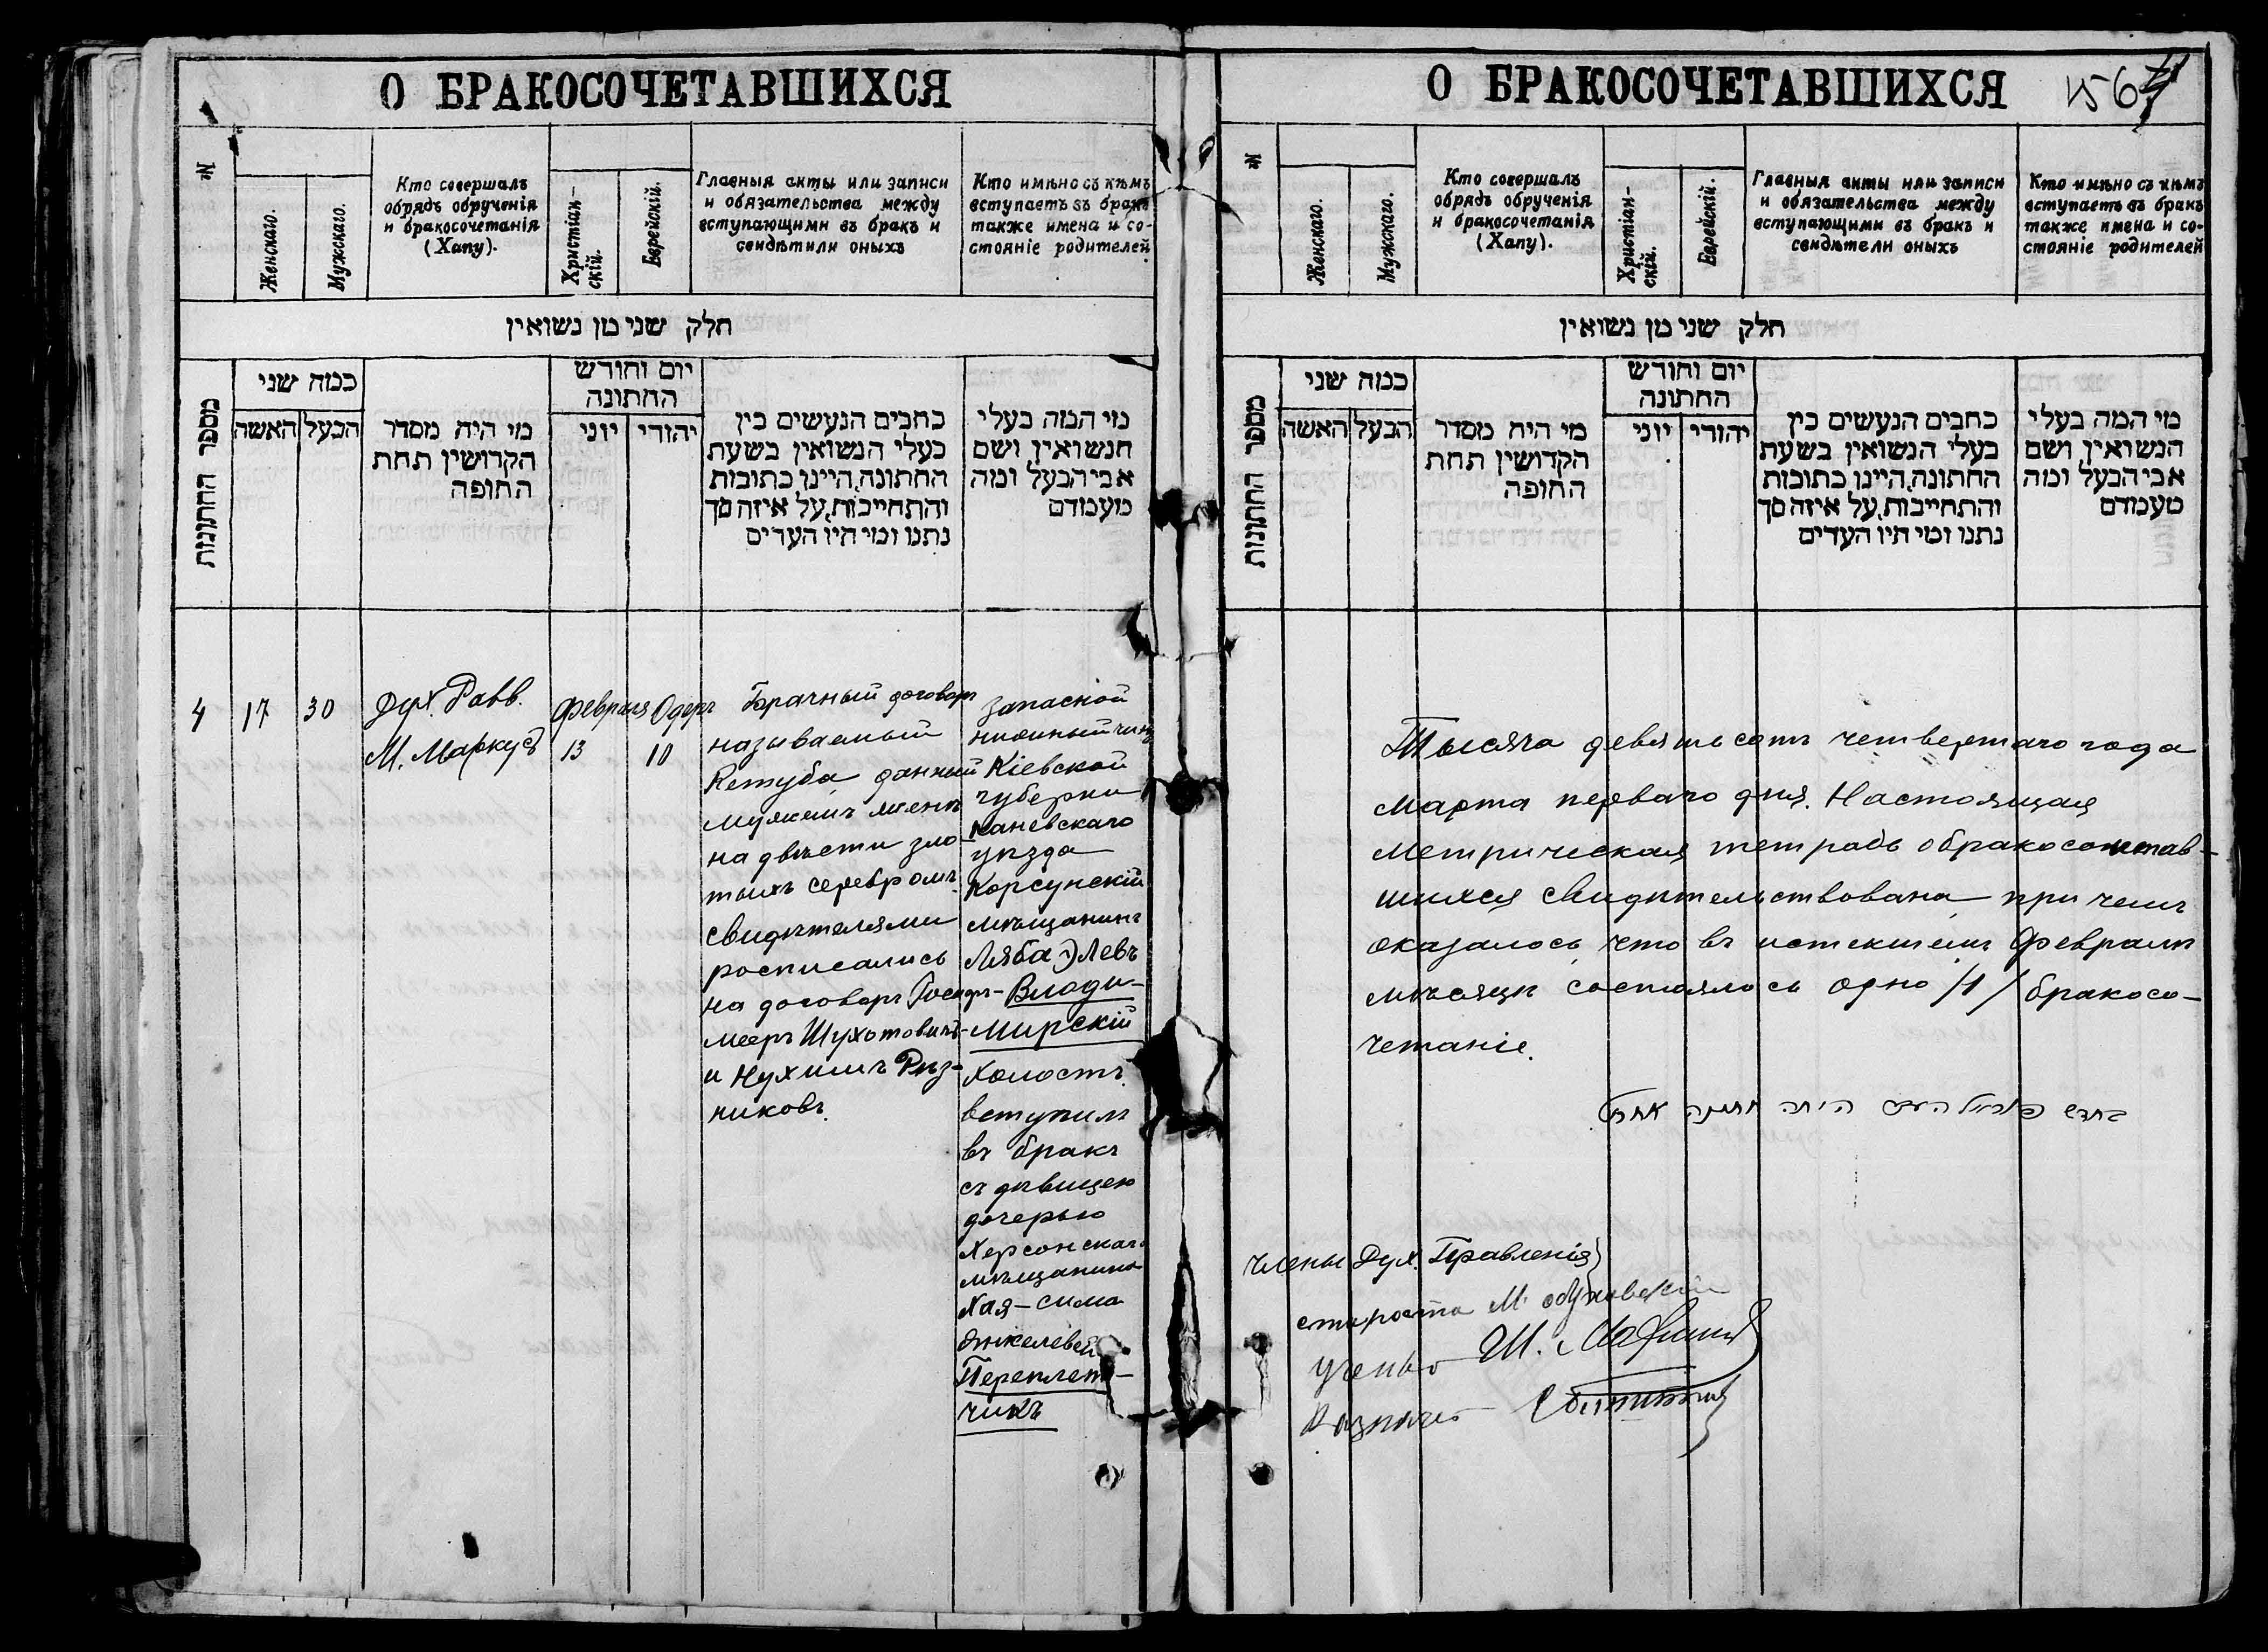 О БРАКОСОЧЕТАВШИХСЯ
№
Женскаго.
Мужскаго.
Кто совершалъ
обрядъ обрученія
и бракосочетанія
(Хапу).
Христіан-
скій.
Еврейскій.
Главныя акты или записи
и обязательства между
вступающими въ бракъ и
свидѣтили оныхъ
Кто имѣно съ кѣмъ
вступаетъ въ бракъ
также имена и со-
стояніе родителей
חלק שני מן נשואין
מספר החתונות
כמה שני
האשה
הבעל
מי היה מסדר
הקדושין תחת
החופה
יום וחודש
החתונה
יוני
יהודי
כתבים הנעשים בין
בעלי הנשואין בשעת
החתונה, היינו כתובות
והתחייבות, על איזה סך
נתנו ומי היו העדים
מי המה בעלי
הנשואין ושם
אבי הבעל ומה
מעמדם
4
17
30
Дух. Равв.
М. Маркусъ
Февраля
13
Одеръ
10
Брачный договоръ
называемый
Кетуба данный
мужемъ женѣ
на двѣсти зло-
тыхъ серебромъ.
свидѣтелями
росписались
на договорѣ
мееръ Шухотовичъ
и Нухимъ Рѣз-
никовъ.
Запасной
нижный чинъ
Кіевской
губерни
Каневскаго
уѣзда
Корсунскій
мѣщанинъ
Ляба Левъ
Влоди-
мирскій
холостъ.
вступилъ
въ бракъ
съ дѣвицею
дочерью
Херсонскаго
мѣщанина
Хая-Сима
Янкелевой
Переплет-
чикъ
О БРАКОСОЧЕТАВШИХСЯ
№
Женскаго.
Мужскаго.
Кто совершалъ
обрядъ обрученія
и бракосочетанія
(Хапу).
Христіан-
скій.
Еврейскій.
Главныя акты или записи
и обязательства между
вступающими въ бракъ и
свидѣтели оныхъ
Кто имѣно съ кѣмъ
вступаетъ въ бракъ
также имена и со-
стояніе родителей
חלק שני מן נשואין
מספר החתונות
כמה שני
האשה
הבעל
מי היה מסדר
הקדושין תחת
החופה
יום וחודש
החתונה
יוני
יהודי
כתבים הנעשים בין
בעלי הנשואין בשעת
החתונה, היינו כתובות
והתחייבות, על איזה סך
נתנו ומי היו העדים
מי המה בעלי
הנשואין ושם
אבי הבעל ומה
מעמדם
Тысяча девятьсотъ четвертаго года
марта перваго дня. Настоящая
метрическая тетрадь о бракосочетав-
шихся свидѣтельствована при чемъ
оказалось, что въ истекшемъ Февралѣ
мѣсяцѣ состоялось одно /1/ бракосо-
четаніе.
בחדש היתה חתונה אחת
Члены Дух. Правленія
староста М. Обуховскій
Ученый Ш.
Казначей